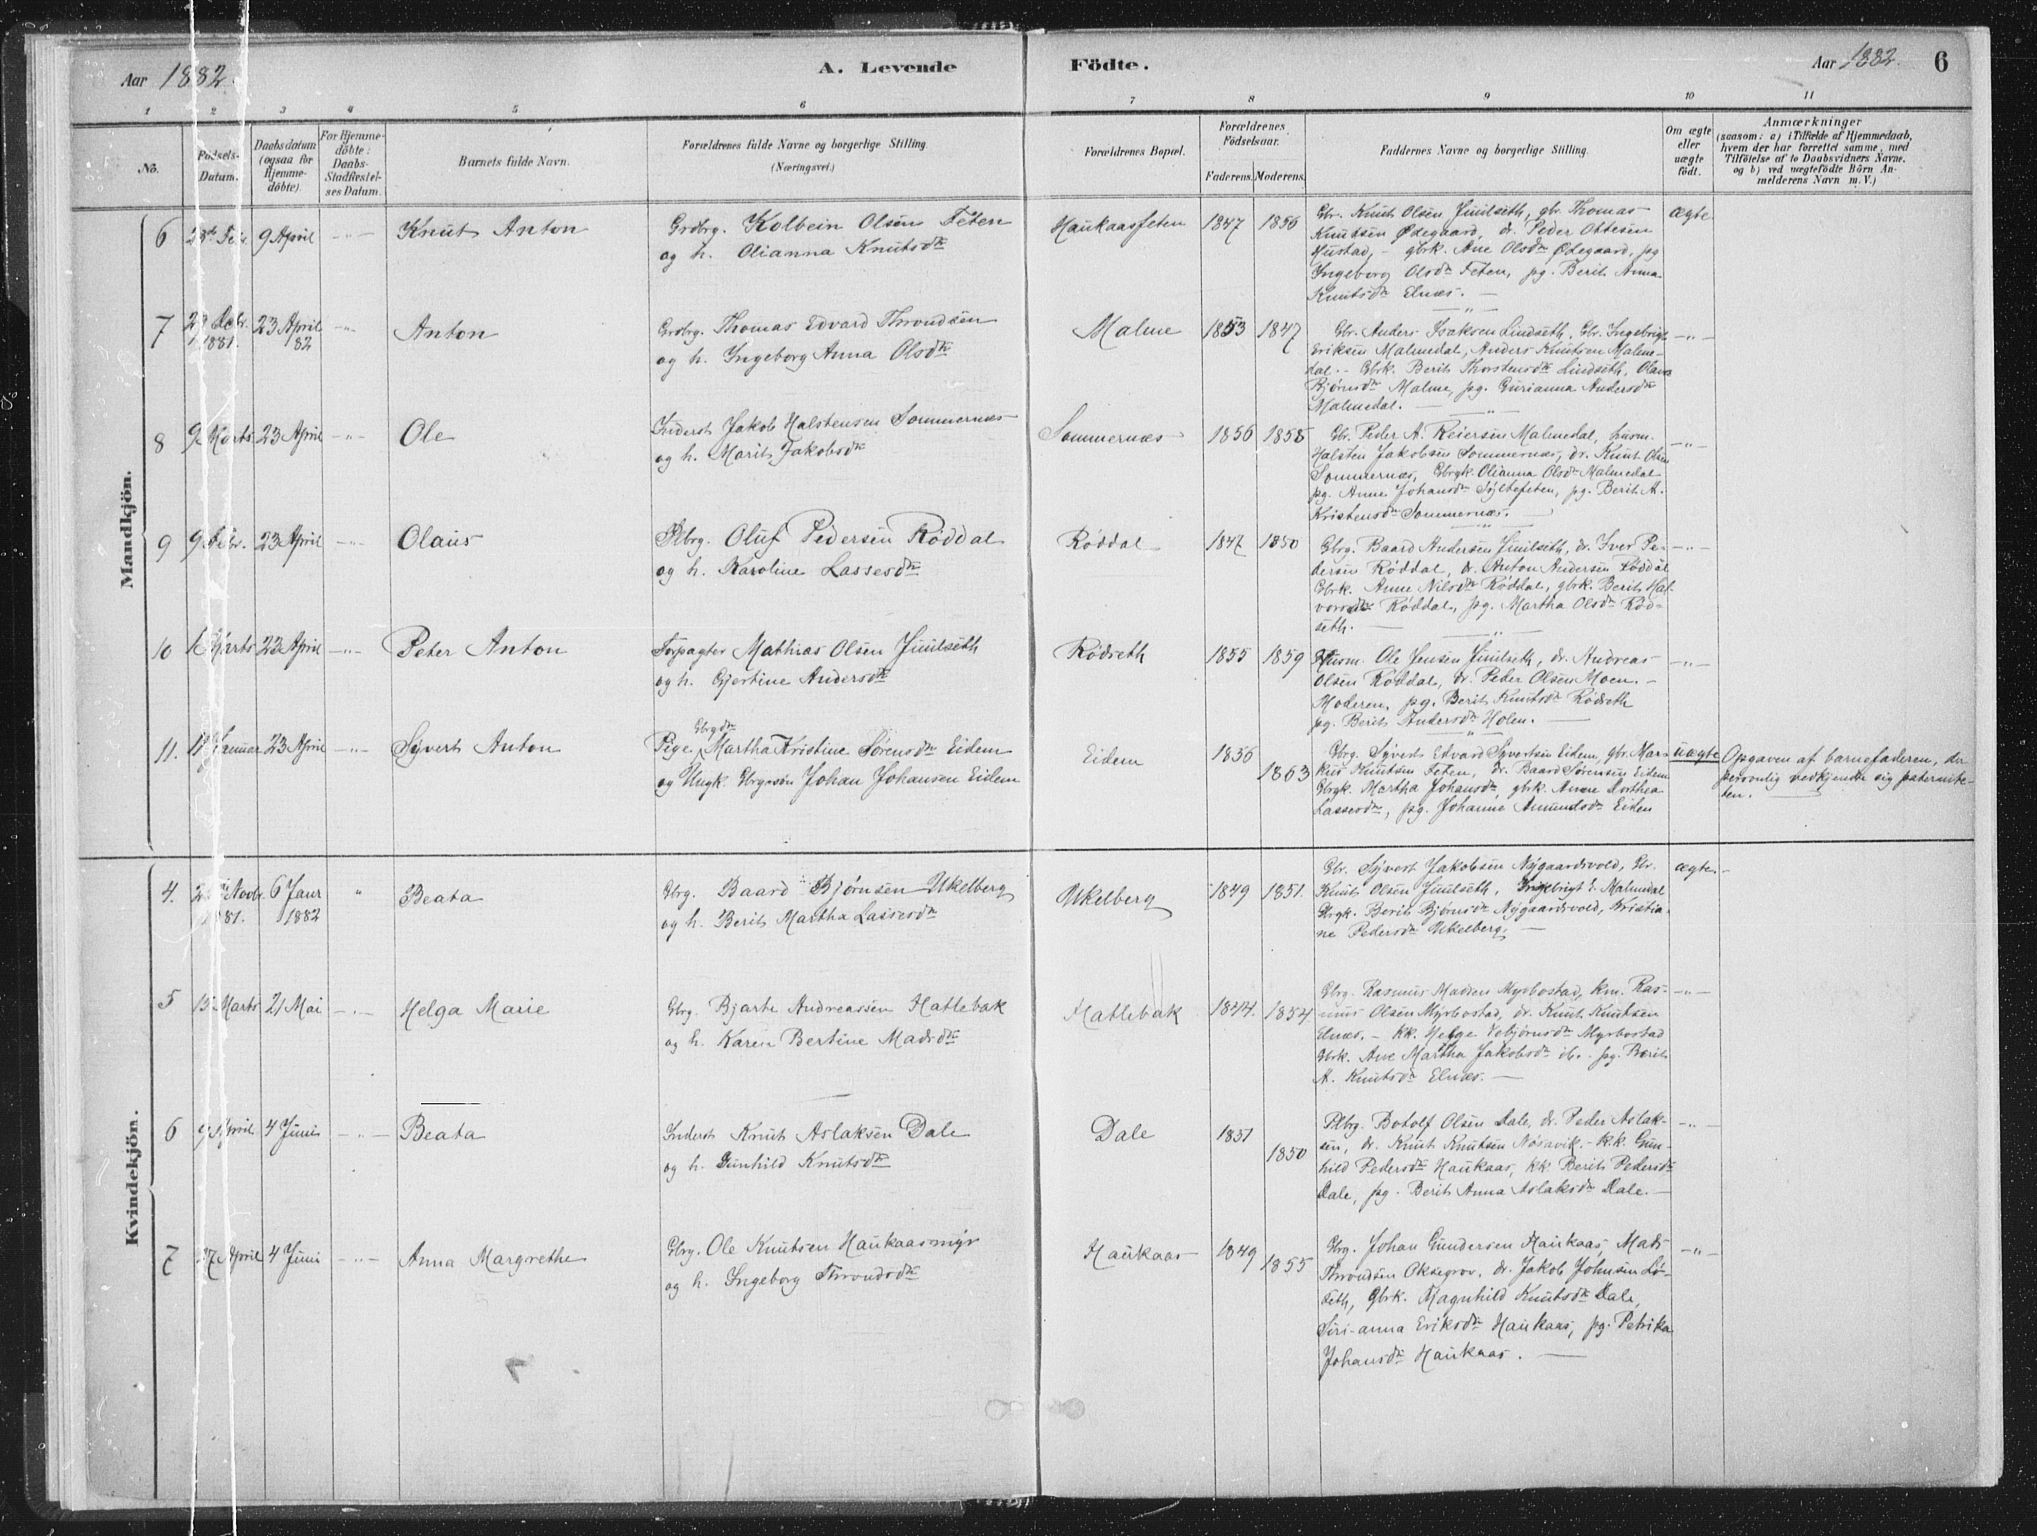 Aar 1882.
A. Levende Födte.
Aar 1882. 6
1 2 3 4 5 6 7 8 9 10 11
No.
Födsels-
Datum.
Daabsdatum
(ogsaa for
Hjemme-
döbte).
For Hjemme-
döbte:
Daabs-
Stadfæstel-
ses Datum.
Barnets fulde Navn.
Forældrenes fulde Navne og borgerlige Stilling
(Næringsvei.)
Forældrenes Bopæl.
Forældrenes
Födselsaar.
Faderens. Moderens.
Faddernes Navne og borgerlige Stilling.
Om ægte
eller
uægte
födt.
Anmærkninger
(saasom: a) i Tilfælde af Hjemmedaab,
hvem der har forrettet samme, med
Tilföielse af to Daabsvidners Navne.
og b) ved uægtefödte Börn An-
melderens Navn m. V.)
Mandkjön.
6 Febr. 9 April Knut Anton
Grdbrg. Kolbein Olsen Feten
og h. Olianna Knutsdtr
Haukaasfeten 1847 1856
Gbr. Knut Olsen Juulseth, gbr. Thomas
Knutsen Ødegaard, dr. Peder Ottesen
Hustad, - gbrk. Ane Olsdtr Ødegaard, pg
Ingeborg Olsdtr Feten, pg. Berit Anna
Knutsdtr Elnæs. -
ægte
7 Febr. 1881. 23 April 82 Anton
Grdbrg. Thomas Edvard Throndsen
og h. Ingeborg Anna Olsdtr
Malme 1853 1847
Gbr. Anders Isaksen Lindseth, Gbr. Ingebrigt
Eriksen Malmedal, Anders Knutsen Malme-
dal. - Gbrk. Berit Thorstensdtr Lindseth, Olava
Bjørnsdtr Malme, pg. Gurianna Andersdtr
Malmedal.
8 9 Marts 23 April Ole
Inderst Jakob Halstensen Sommernæs
og h. Marit Jakobsdtr
Sommernæs 1856 1858
Gbr. Peder A. Reiersen Malmedal, husm.
Halsten Jakobsen Sommernæs, dr. Knut Olsen
Sommernæs, Gbrgk. Olianna Olsdtr Malmedal
pg. Anne Johansdtr Syltefeten, pg. Berit A.
Kristensdtr Sommernæs.
9 9 Febr. 23 April Olaus
Plbrg. Oluf Pedersen Røddal
og h. Karoline Lassesdtr
Røddal 1847 1850
Gbrg. Baard Andersen Juulseth, dr. Iver Pe-
dersen Røddal, dr. Anton Andersen Røddal
Gbrk. Anne Nilsdtr Røddal, gbrk. Berit Hal-
vorsdtr Røddal, pg. Martha Olsdtr Rød-
seth.
10 Marts 23 April Peter Anton
Forpagter Mathias Olsen Juulseth
og h. Gjertine Andersdtr
Rødseth 1855 1859
Husm. Ole Jensen Juulseth, dr. Andreas
Olsen Røddal, dr. Peder Olsen Moen. -
Moderen, pg. Berit Knutsdtr Rødseth
pg. Berit Andersdtr Holen. -
11. Januar 23 April Syvert Anton
Gbrgdtr
Pige, Martha Kristine Sørensdtr Eidem
og Ungk. Gbrgssøn Johan Johansen Eidem
Eidem 1856 1863
Gbrg. Syvert Edvard Syvertsen Eidem, gbr. Mar-
kus Knutsen Feten, dr. Baard Sørensen Eidem
Gbrgk. Martha Johansdtr, gbrk. Anne Dorthea
Lassesdtr, pg. Johanne Amundsdtr Eidem
uægte
Opgaven af barnefaderen, der
personlig vedkjendte sig paternite-
ten.
Kvindekjön.
4. Novbr. 1881. 6 Janr 1882 Beata
Gbrg. Baard Bjørnsen Ukelberg
og h. Berit Martha Lassesdtr
Ukelberg 1849 1851.
Gbr. Syvert Jakobsen Nygaardsvold, Gbr.
Knut Olsen Juulseth, Ingebrigt E. Malmedal
Gbrgk. Berit Bjørnsdtr Nygaardsvold, Kristia-
ne Pedersdtr Ukelberg. -
ægte.
5 15 Marts 21 Mai Helga Marie
Gbrg. Bjarte Andreassen Hatlebak
og h. Karen Bertine Madsdtr
Hatlebak 1844. 1854
Gbrg. Rasmus Madsen Myrbostad, km. Ras-
mus Olsen Myrbostad, dr. Knut Knutsen
Elnæs. - kk. Helge Myrbostad
Gbrk. Ane Martha Jakobsdtr ib. pg. Berit
A. Knutsdtr Elnæs. -
6 9 April 4 Juni Beata
Inderst Knut Aslaksen Dale
og h. Gunhild Knutsdtr
Dale 1851 1850
Plbrg. Botolf Olsen Dale, dr. Peder Aslak-
sen, dr. Knut Knutsen Nøsavik. - kk. Gun-
hild Pedersdtr Haukaas, kk Berit Pedersdtr
Dale, pg. Berit Anna Aslaksdtr Dale. -
7 27 April 4 Juni Anna Margrethe
Gbrg. Ole Knutsen Haukaasmyr
og h. Ingeborg Throndsdtr
Haukaas 1849 1855
Gbrg. Johan Gundersen Haukaas, Mads
Throndsen Oksegrov, dr. Jakob Johnsen Lø-
seth, Gbrk. Magnhild Knutsdtr Dale,
Siri-anna Eriksdtr Haukaas, pg. Petrika
Johansdtr Haukaas. -